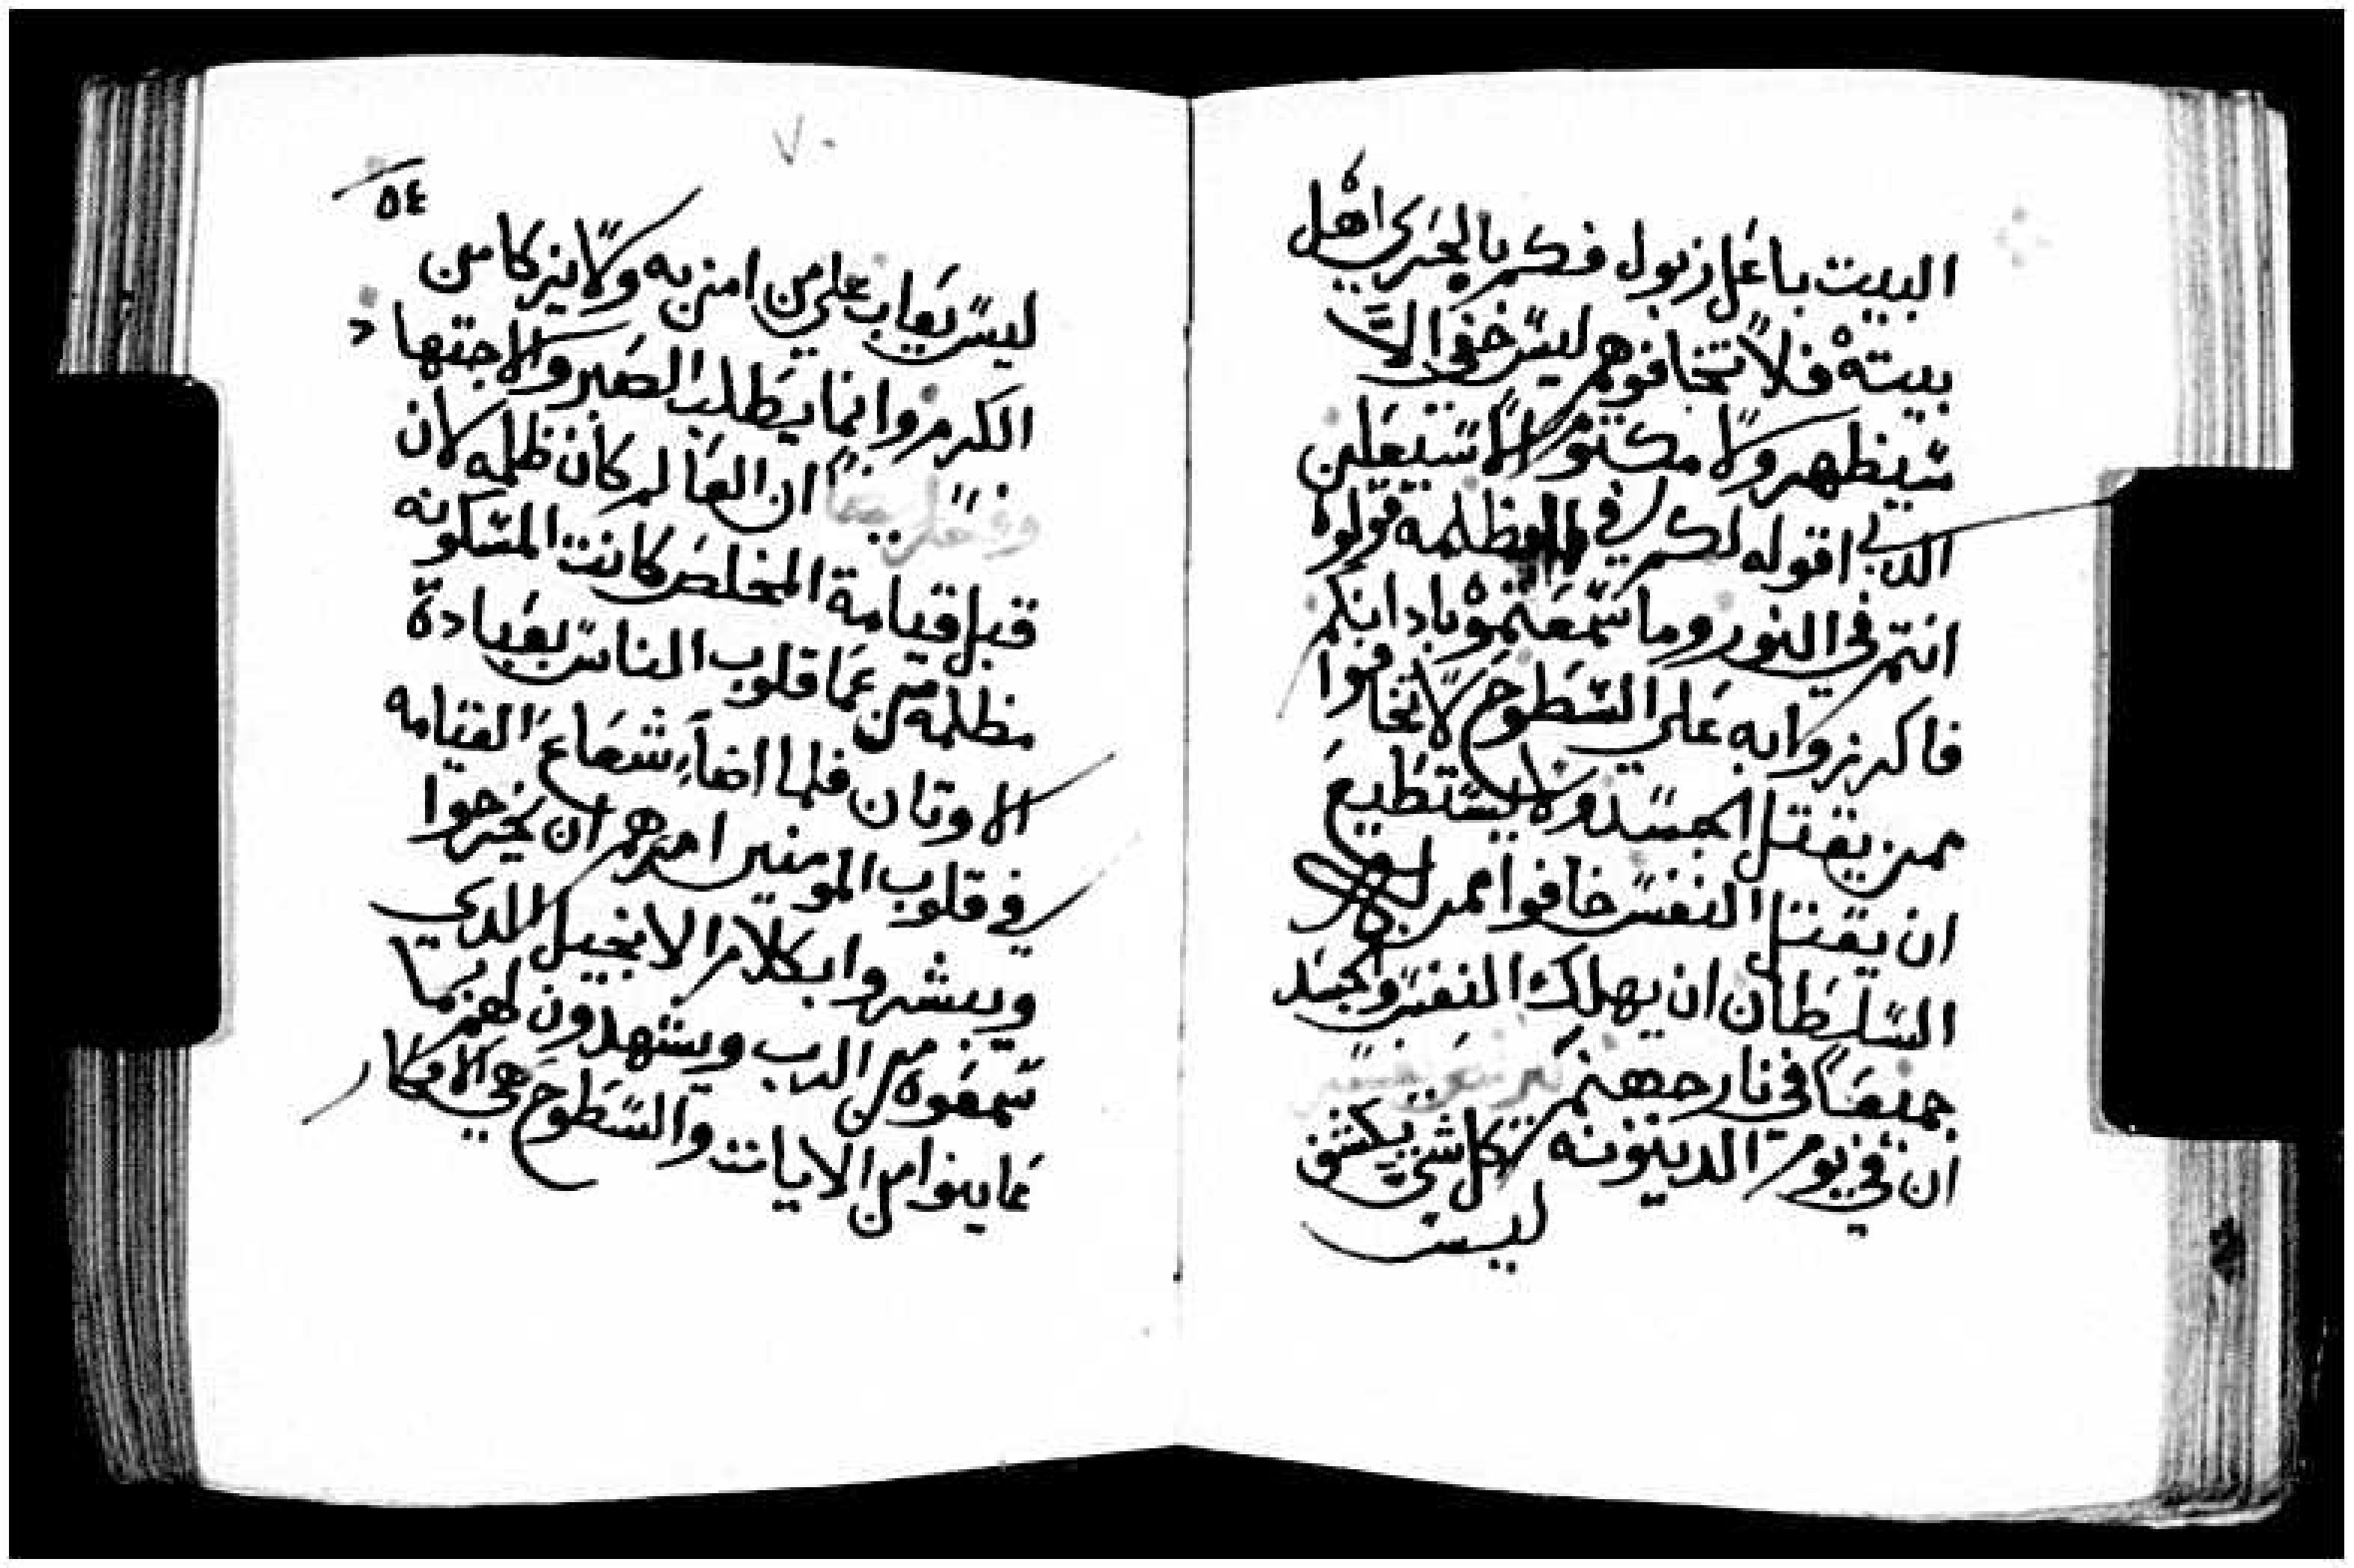 البيت باعل زبول فكم بالحري اهل
بيته فلا تخافوهم ليس خفي الا
سيظهر ولا مكتوم الا سيعلن
الدي اقوله لكم في الظلمه قولوه
انتم في النور وما سمعتموه بادانكم
فاكرزوا به على السطوح لا تخافوا
ممن يقتل الجسد ولا يستطيع
ان يقتل النفس خافوا ممن له
السلطان ان يهلك النفس والجسد
جميعا في نار جهنم
ان في يوم الدينونه كل شي يكشف
ليس
٧٠
٥٤
ليس يعاب على من امن به ولا يزكا من
الكرم وانما يطلب الصبر والاجتهاد
ان العالم كان ظلمه لان
قبل قيامة المخلص كانت المسكونه
مظلمه من عما قلوب الناس بعبادة
الاوتان فلما اضاء شعاع القيامه
في قلوب المومنين امرهم ان يخرجوا
ويبشروا بكلام الانجيل الدي
سمعوه من الرب ويشهدون لهم بما
عاينوا من الايات والسطوح هي الافكار